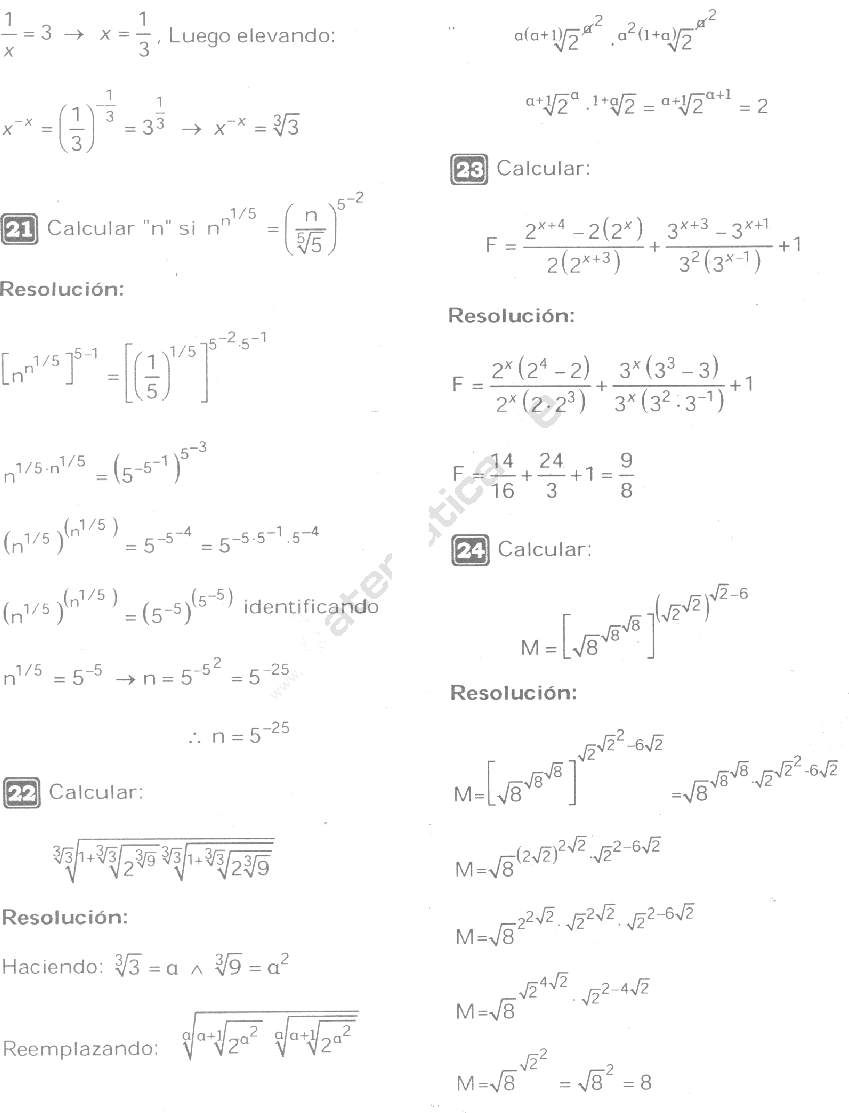 1/x = 3 → x = 1/3, Luego elevando:
x^{-x} = (1/3)^{-1/3} = 3^{1/3} → x^{-x} = ∛3
21 Calcular "n" si n^{n^{1/5}} = (n/⁵√5)^{5^{-2}}
Resolución:
[n^{n^{1/5}}]^{5^{-1}} = [(1/5)^{1/5}]^{5^{-2}·5^{-1}}
n^{1/5·n^{1/5}} = (5^{-5^{-1}})^{5^{-3}}
(n^{1/5})^{(n^{1/5})} = 5^{-5^{-4}} = 5^{-5·5^{-1}·5^{-4}}
(n^{1/5})^{(n^{1/5})} = (5^{-5})^{(5^{-5})} identificando
n^{1/5} = 5^{-5} → n = 5^{-5^2} = 5^{-25}
∴ n = 5^{-25}
22 Calcular:
\sqrt[∛3]{\sqrt[1+∛3]{2^{∛9}} \sqrt[∛3]{\sqrt[1+∛3]{2^{∛9}}}}
Resolución:
Haciendo: ∛3 = a ∧ ∛9 = a²
Reemplazando: \sqrt[a]{\sqrt[a+1]{2^{a^2}} \sqrt[a]{\sqrt[a+1]{2^{a^2}}}}
\sqrt[a(a+1)]{2^{a^2}} · \sqrt[a^2(1+a)]{2^{a^2}}
\sqrt[a+1]{2^a} · \sqrt[1+a]{2} = \sqrt[a+1]{2^{a+1}} = 2
23 Calcular:
F = (2^{x+4} − 2(2^x))/(2(2^{x+3})) + (3^{x+3} − 3^{x+1})/(3²(3^{x−1})) + 1
Resolución:
F = (2^x(2⁴ − 2))/(2^x(2·2³)) + (3^x(3³ − 3))/(3^x(3²·3^{−1})) + 1
F = 14/16 + 24/3 + 1 = 9/8
24 Calcular:
M = [√8^{√8^{√8}}]^{(√2^{√2})^{√2−6}}
Resolución:
M = [√8^{√8^{√8}}]^{√2^{√2^2−6√2}} = √8^{√8^{√8}·√2^{√2^2−6√2}}
M = √8^{(2√2)^{2√2}·√2^{2−6√2}}
M = √8^{2^{2√2}·√2^{2√2}·√2^{2−6√2}}
M = √8^{√2^{4√2}·√2^{2−4√2}}
M = √8^{√2^2} = √8^2 = 8